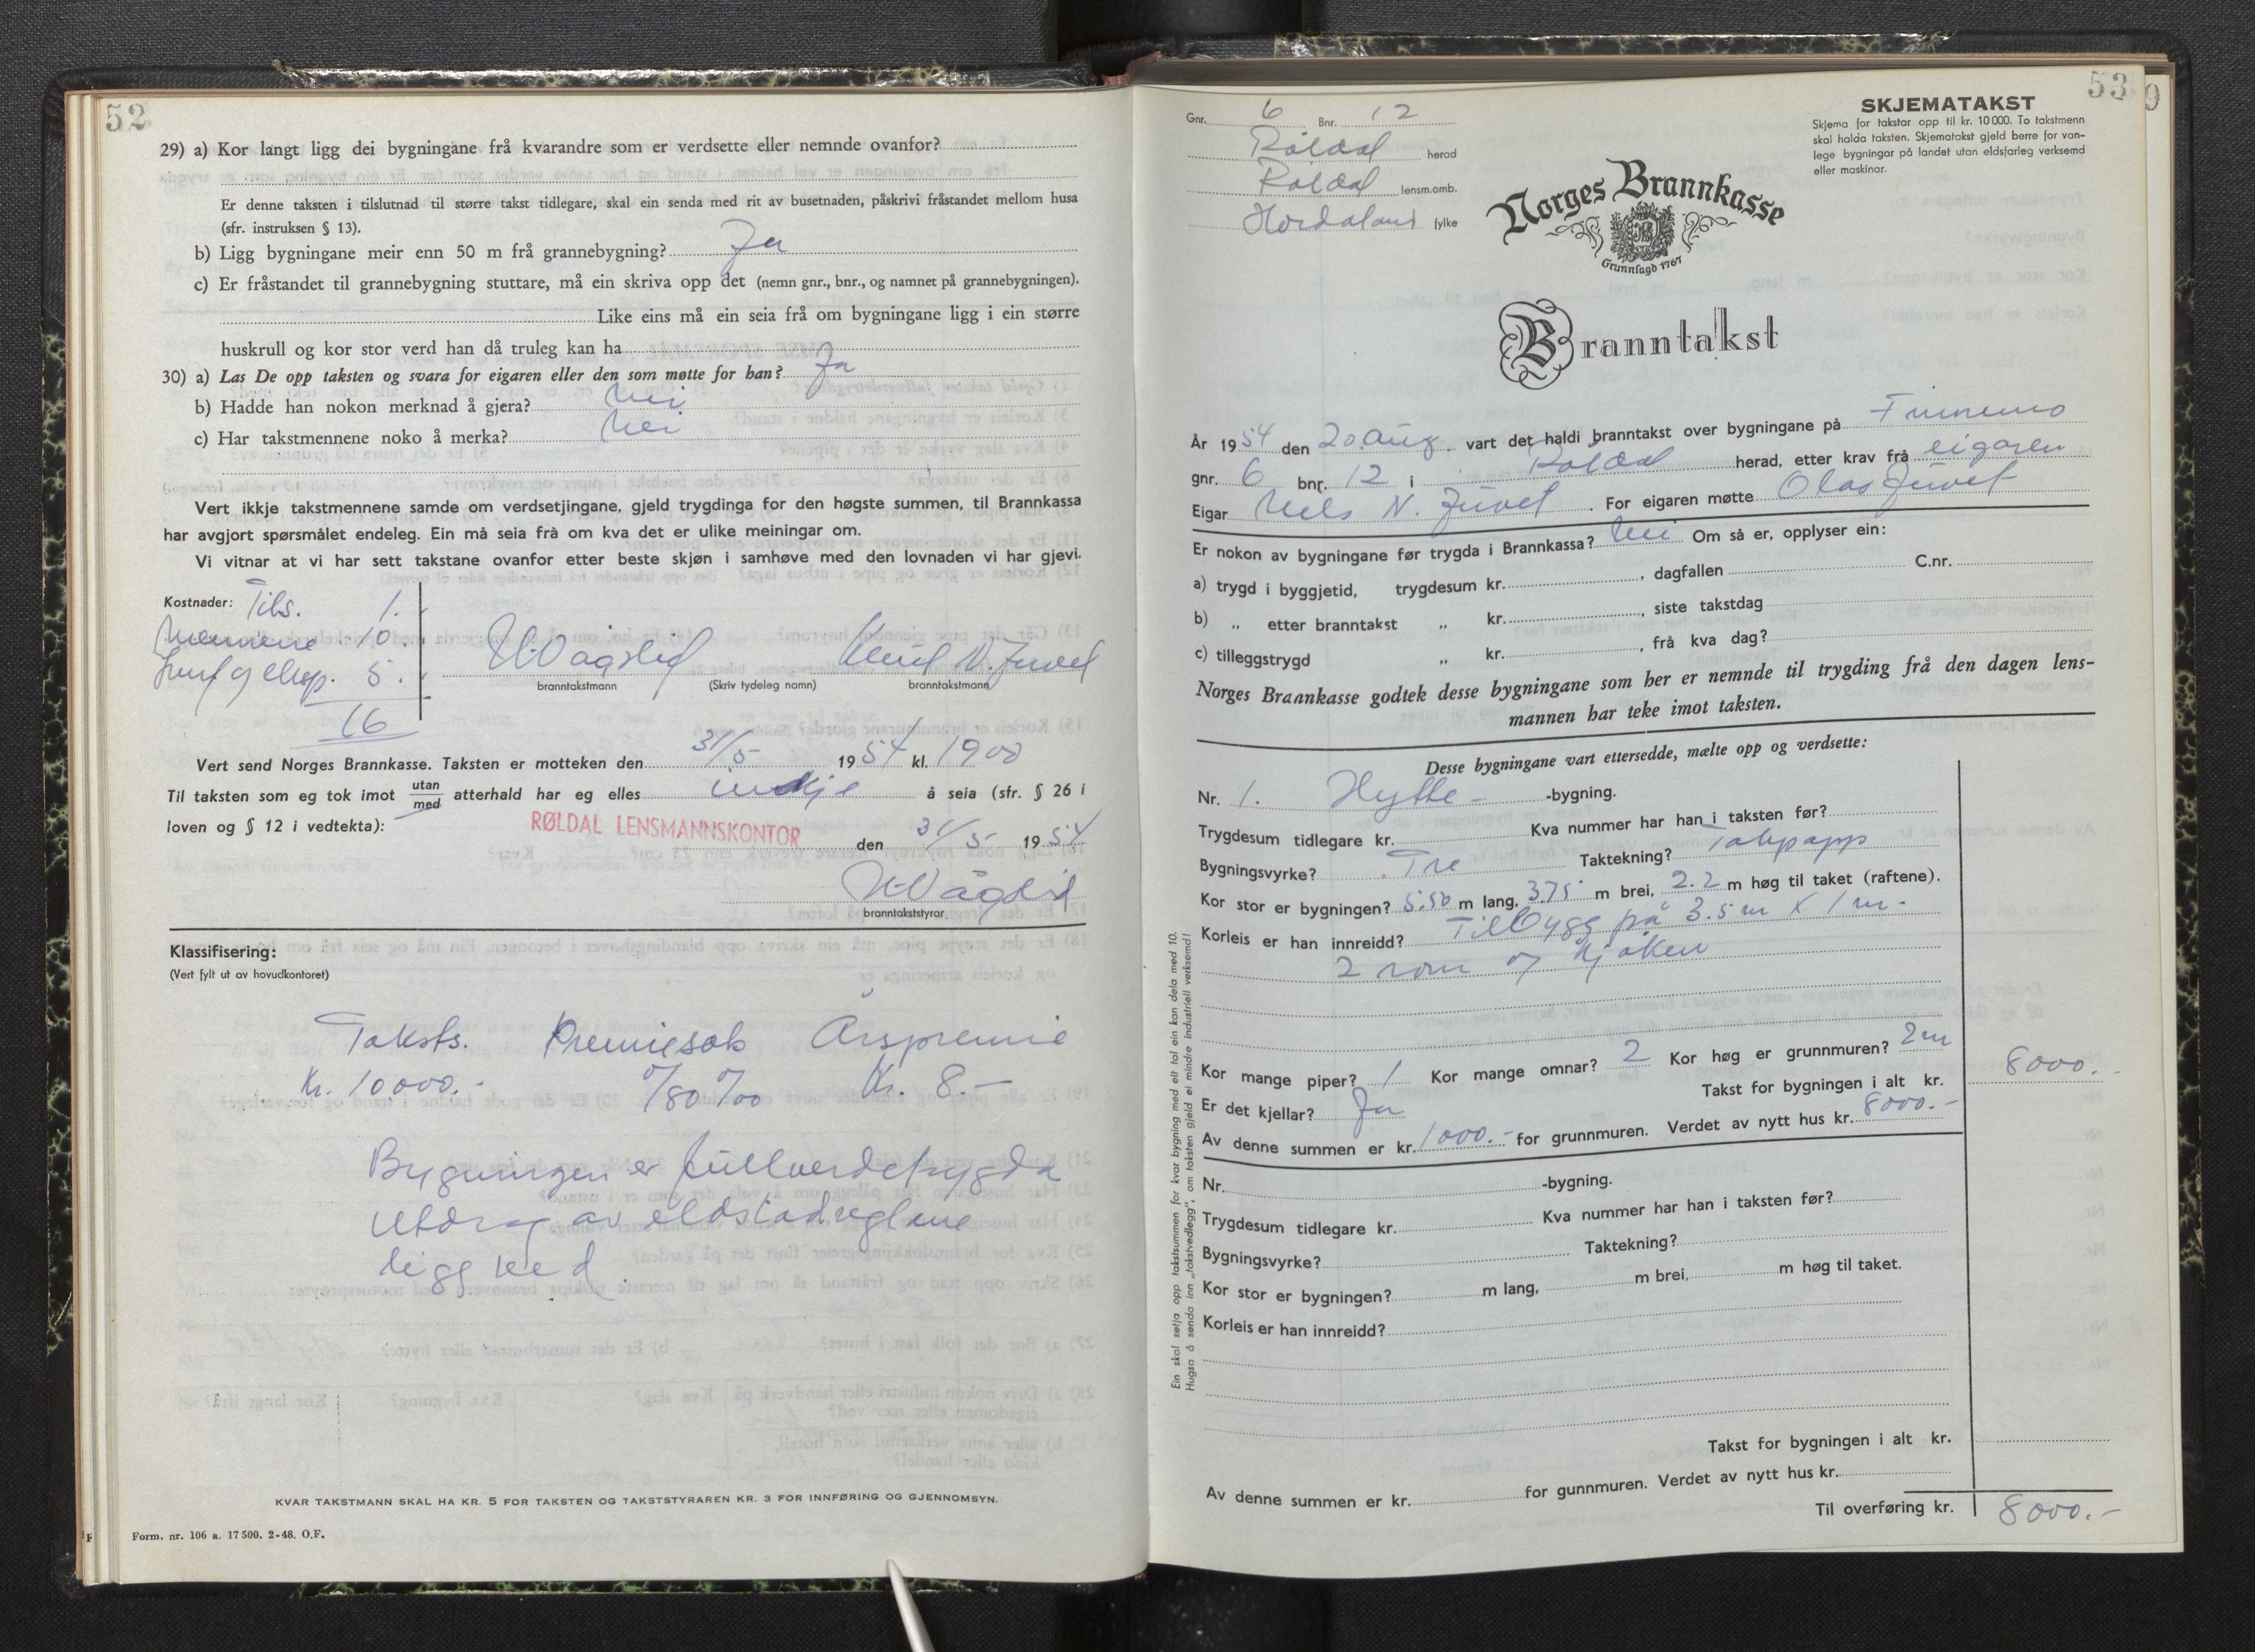 52
29) a) Kor langt ligg dei bygningane frå kvarandre som er verdsette eller nemnde ovanfor?
Er denne taksten i tilslutnad til større takst tidlegare, skal ein senda med rit av busetnaden, påskrivi fråstandet mellom husa
(sfr. instruksen § 13).
b) Ligg bygningane meir enn 50 m frå grannebygning? Ja
c) Er fråstandet til grannebygning stuttare, må ein skriva opp det (nemn gnr., bnr., og namnet på grannebygningen).
Like eins må ein seia frå om bygningane ligg i ein større
huskrull og kor stor verd han då truleg kan ha
30) a) Las De opp taksten og svara for eigaren eller den som møtte for han? Ja
b) Hadde han nokon merknad å gjera? Nei
c) Har takstmennene noko å merka? Nei
Vert ikkje takstmennene samde om verdsetjingane, gjeld trygdinga for den høgste summen, til Brannkassa
har avgjort spørsmålet endeleg. Ein må seia frå om kva det er ulike meiningar om.
Vi vitnar at vi har sett takstane ovanfor etter beste skjøn i samhøve med den lovnaden vi har gjevi.
Kostnader: Tils. 1.
Mennene 10.
5.
16
H Vågslid Knut N. Juvet
branntakstmann (Skriv tydeleg namn) branntakstmann
Vert send Norges Brannkasse. Taksten er motteken den 31/5 1954 kl. 1900
Til taksten som eg tok imot utan/med atterhald har eg elles inkje å seia (sfr. § 26 i
loven og § 12 i vedtekta):
RØLDAL LENSMANNSKONTOR den 31/5 1954
H Vågslid
branntakststyrar
Klassifisering:
(Vert fylt ut av hovudkontoret)
Taksts. Premiesats Årspremie
Kr. 10000.- 0/80 0/00 Kr. 8.-
Bygningen er fullverdetrygda
Utdrag av eldstadreglane
ligg ved.
KVAR TAKSTMANN SKAL HA KR. 5 FOR TAKSTEN OG TAKSTSTYRAREN KR. 3 FOR INNFØRING OG GJENNOMSYN.
Form. nr. 106 a. 17 500. 2-48. O.F.
53
9
Gnr. 6 Bnr. 12
Røldal herad
Røldal lensm.omb.
Hordaland fylke
SKJEMATAKST
Skjema for takstar opp til kr. 10 000. To takstmenn
skal halda taksten. Skjematakst gjeld berre for van-
lege bygningar på landet utan eldsfarleg verksemd
eller maskinar.
Norges Brannkasse
Grunnlagd 1767
Branntakst
År 1954 den 20. Aug. vart det haldi branntakst over bygningane på
gnr. 6 bnr. 12 i Røldal herad, etter krav frå eigaren
Eigar Nels N. Juvet. For eigaren møtte Olav Juvet
Er nokon av bygningane før trygda i Brannkassa? Nei Om så er, opplyser ein:
a) trygd i byggjetid, trygdesum kr. , dagfallen C.nr.
b) „ etter branntakst „ kr. , siste takstdag
c) tilleggstrygd „ kr. , frå kva dag?
Norges Brannkasse godtek desse bygningane som her er nemnde til trygding frå den dagen lens-
mannen har teke imot taksten.
Desse bygningane vart ettersedde, mælte opp og verdsette:
Nr. 1. Hytte- -bygning.
Trygdesum tidlegare kr. Kva nummer har han i taksten før?
Bygningsvyrke? Tre Taktekning? Takpapp
Kor stor er bygningen? 5.50 m lang, 3.75 m brei, 2.2 m høg til taket (raftene).
Korleis er han innreidd? Tilbygg på 3.5 m x 1 m.
2 rom og kjøken
Kor mange piper? 1 Kor mange omnar? 2 Kor høg er grunnmuren? 2 m
Er det kjellar? Ja Takst for bygningen i alt kr. 8000.-
Av denne summen er kr. 1000.- for grunnmuren. Verdet av nytt hus kr. 8000.-
Nr. -bygning.
Trygdesum tidlegare kr. Kva nummer har han i taksten før?
Bygningsvyrke? Taktekning?
Kor stor er bygningen? m lang, m brei, m høg til taket.
Korleis er han innreidd?
Takst for bygningen i alt kr.
Av denne summen er kr. for gunnmuren. Verdet av nytt hus kr.
Til overføring kr. 8000.-
Ein skal setja opp takstsummen for kvar bygning med eit tal ein kan dela med 10.
Hugsa å senda inn „takstvedlegg", om taksten gjeld ei mindre industriell verksemd!